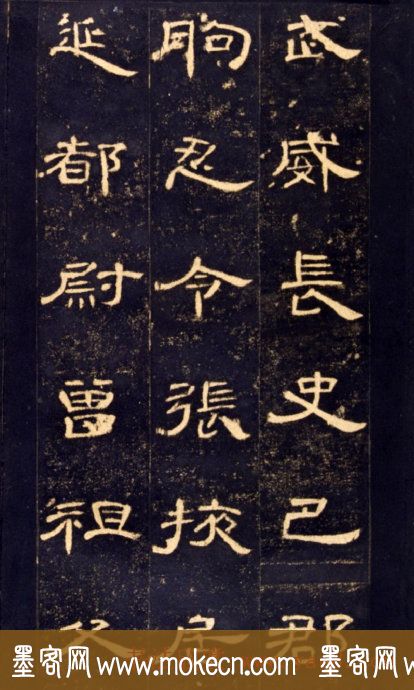 武威長史巴郡
朐忍令張掖居
延都尉曾祖父
墨客网 www.mokecn.com 墨客网 w